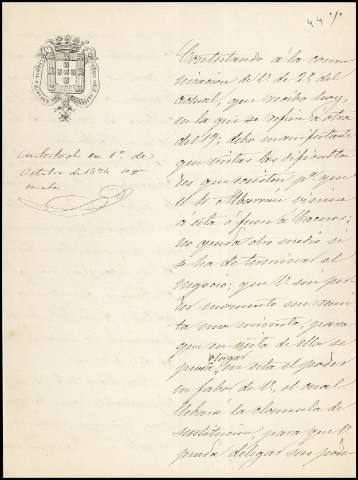 44
Contestando á la comu-
nicacion de V. de 28 del
actual, que recibo hoy,
en la que se refiere á otra
del 19, debo manifestarle
que vistas las dificulta-
des que existen pª que
el Sr. Albarran viniese
á esta ó fuese á Caceres,
no queda otro medio si
se ha de terminar el
negocio, que V. sin per-
der momento me remi-
ta una minuta, para
que en vista de ella se
pueda otorgar en esta el poder
en fabor de V., el cual
llebará la clausula de
sustitucion, para que V.
pueda delegar sus pode-
Contestada en 1º de
Octubre de 1874